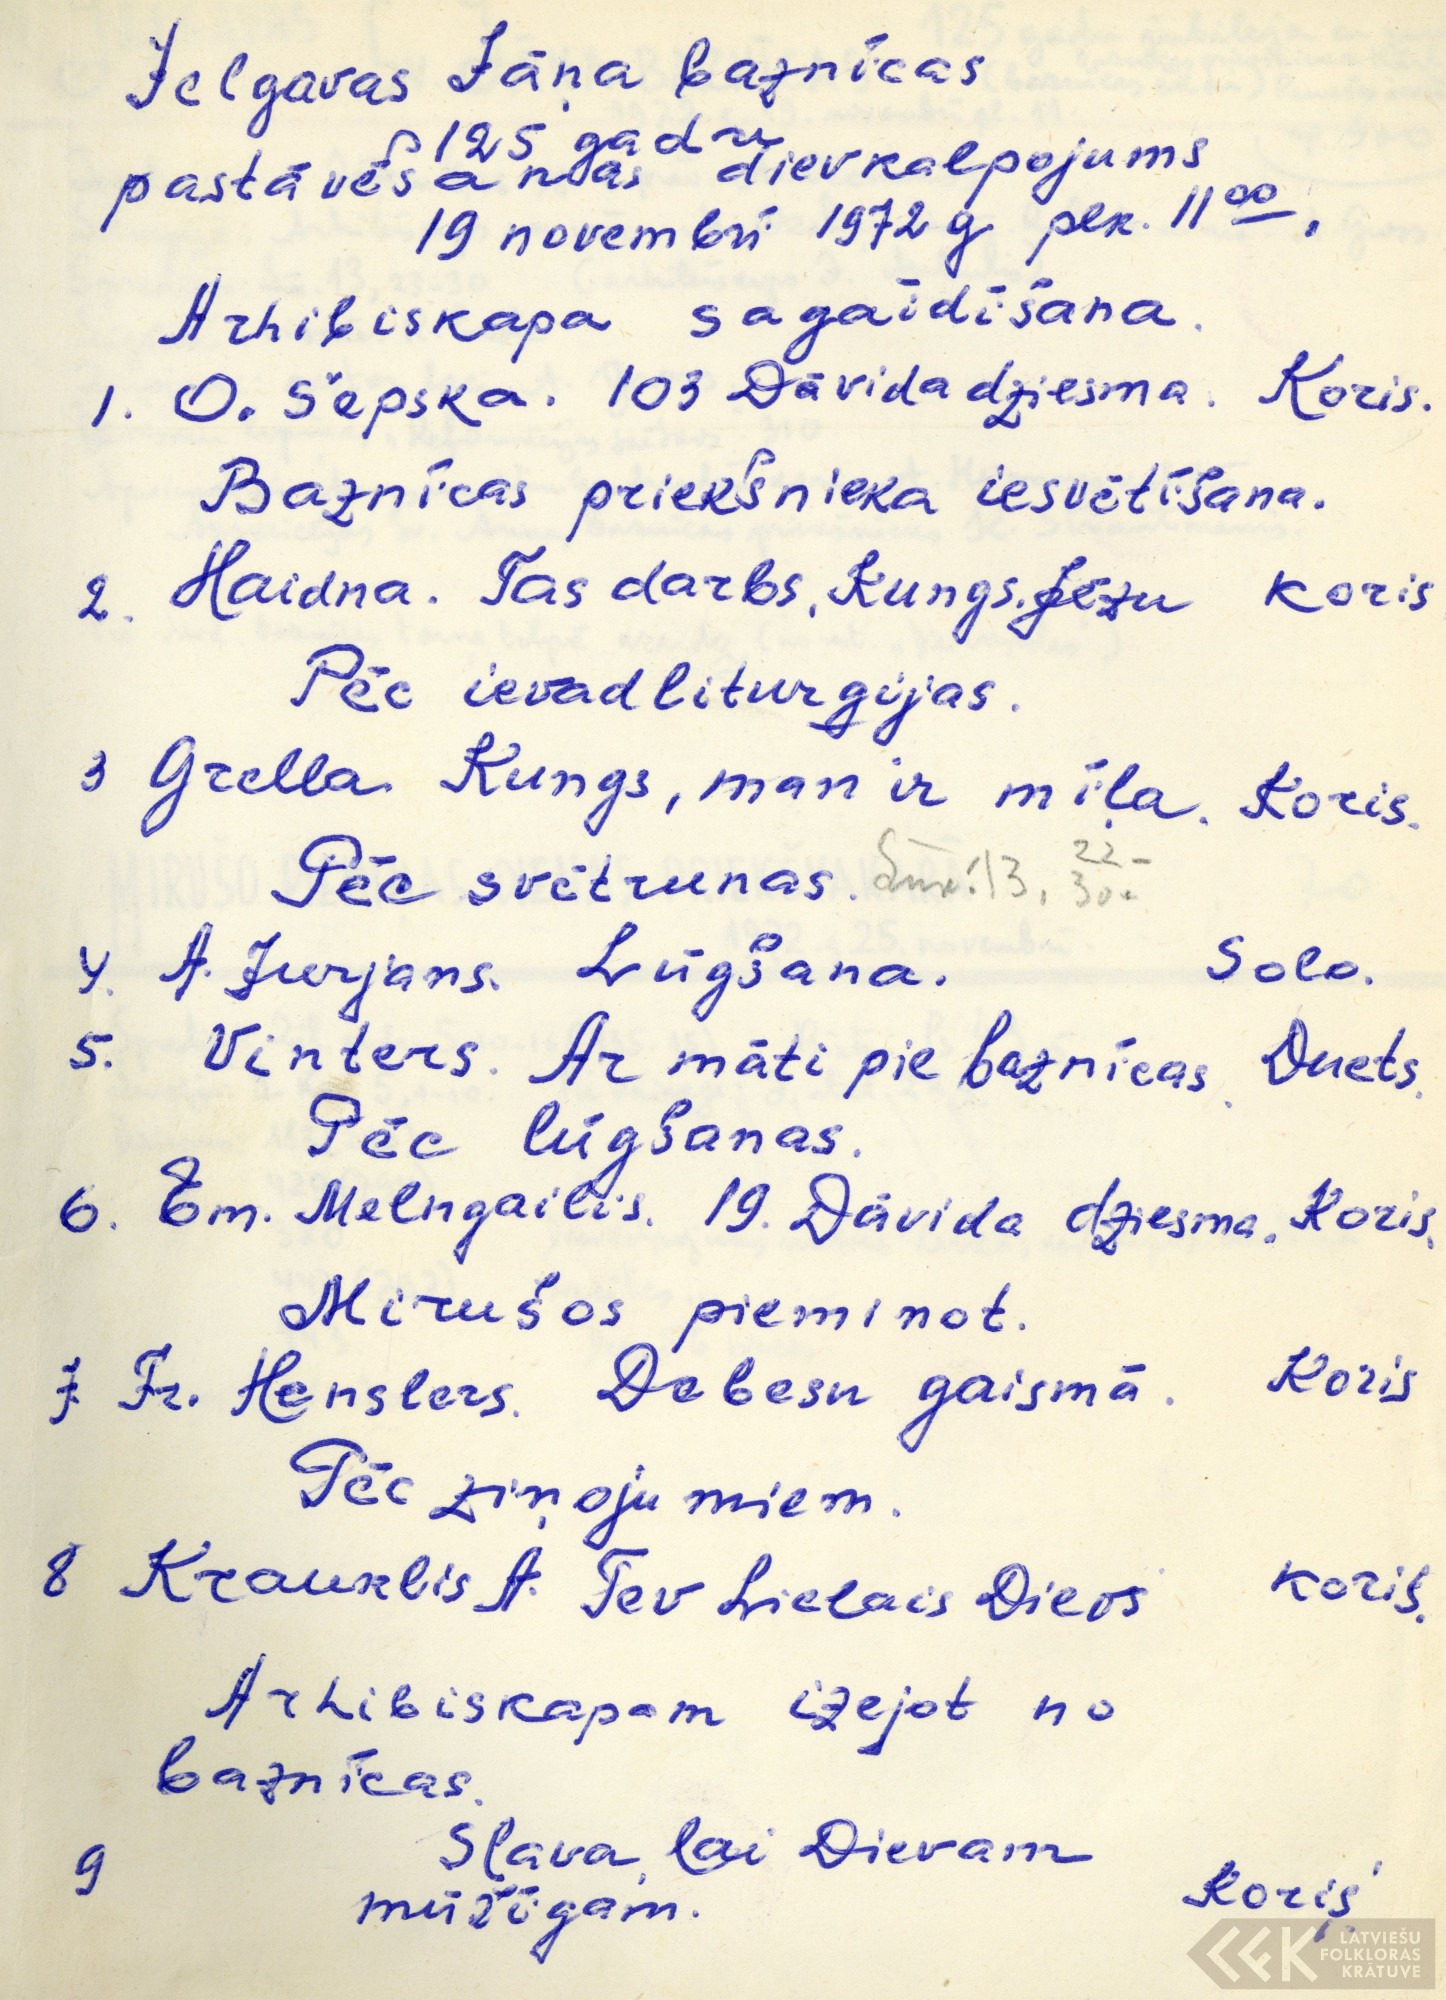 Jelgavas Jāņa baznīcas
125 gadu
pastāvēšanās dievkalpojums
19 novembrī 1972 g plk. 11⁰⁰.
Arhibiskapa sagaidīšana.
1. O. Šepska. 103 Dāvida dziesma. Koris.
Baznīcas priekšnieka iesvētīšana.
2. Haidna. Tas darbs, Kungs Jēzu Koris
Pēc ievadliturģijas.
3 Grella. Kungs, man ir mīļa. Koris.
Pēc svētrunas. 13, 22-30
4. A. Jurjans. Lūgšana. Solo.
5. Vinters. Ar māti pie baznīcas. Duets.
Pēc lūgšanas.
6. Em. Melngailis. 19. Dāvida dziesma. Koris.
Mirušos pieminot.
7 Fr. Henslers. Debesu gaismā. Koris
Pēc ziņojumiem.
8 Krauklis A. Tev Lielais Dievs Koris.
Arhibiskapam izejot no
baznīcas.
9 Slava, lai Dievam
mūžīgam. Koris.
LATVIEŠU
FOLKLORAS
KRĀTUVE